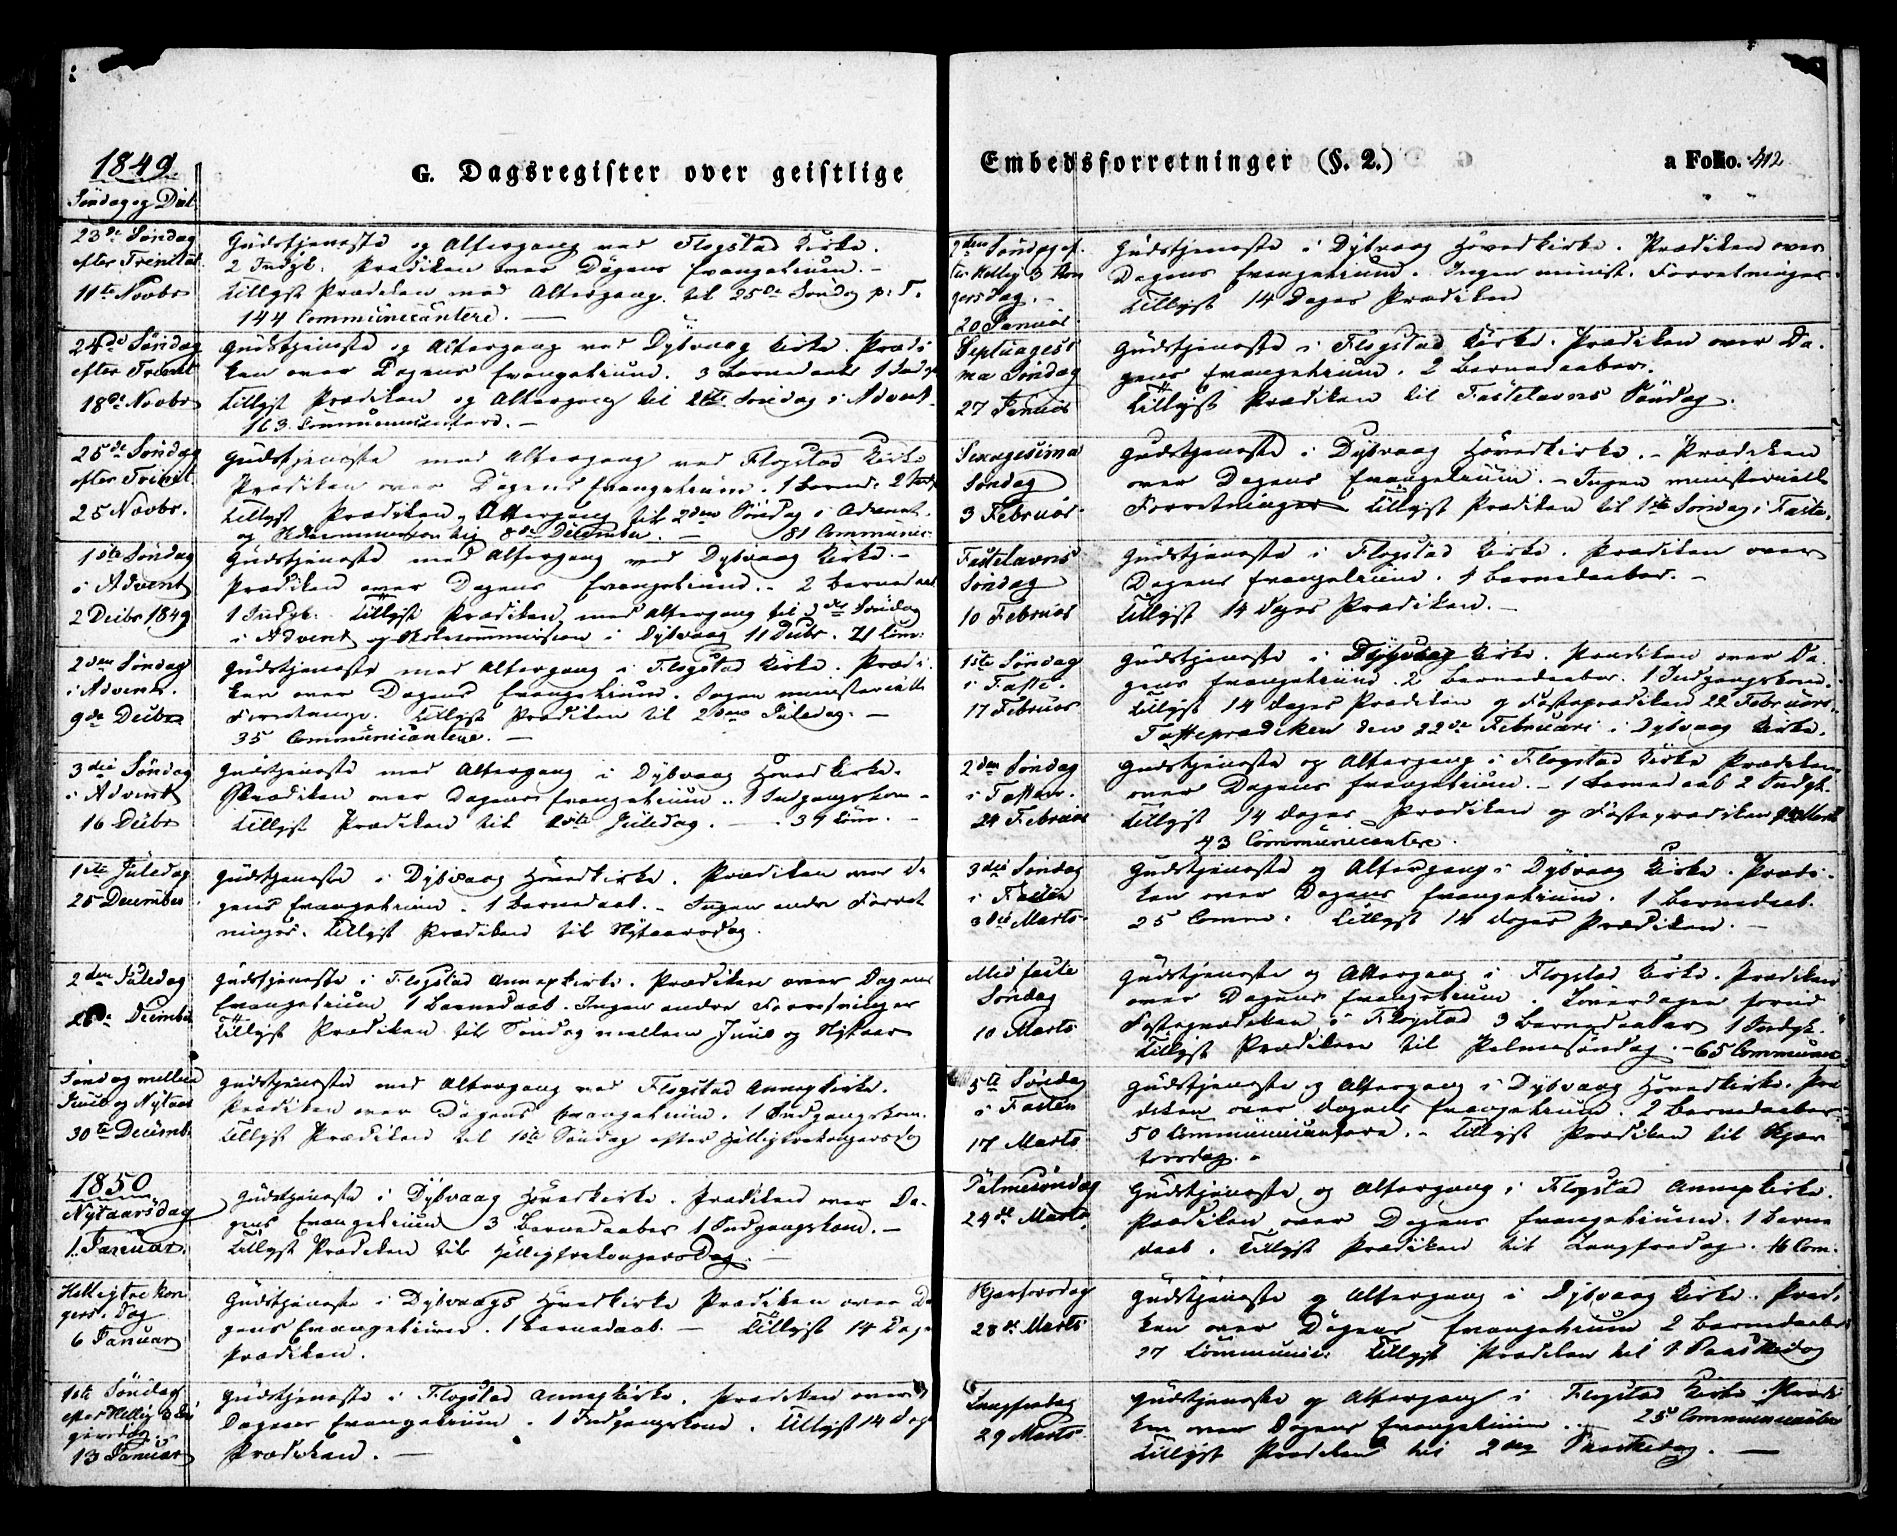 1849.
G. Dagsregister over geistlige
Søndag og Dat.
23de Søndag
efter Trinitat.
11te Novbr
Gudstjeneste og Altergang ved Flogstad Kirke.
2 Indgk. Prædiken over Dagens Evangelium. –
Tillyst Prædiken med Altergang til 25de Søndag p. T.
144 Communicantere. –
24de Søndag
efter Trinit.
18de Novbr
Gudstjeneste og Altergang ved Dybvaag Kirke. Prædi
ken over Dagens Evangelium. 3 Barnedaab 1 Indgk
Tillyst Prædiken og Altergang til 1ste Søndag i Advent.
163 Communicantere. –
25de Søndag
efter Trinit.
25 Novbr.
Gudstjeneste med Altergang ved Flogstad Kirke
Prædiken over Dagens Evangelium. 1 Barned. 2 Indgk
Tillyst Prædiken, Altergang til 2den Søndag i Advent.
og 8de December. – 81 Communic.
1ste Søndag
i Advent
2 Decbr 1849
Gudstjeneste med Altergang ved Dybvaag Kirke. –
Prædiken over Dagens Evangelium. – 2 Barnedaab
1 Indgk. Tillyst Prædiken med Altergang til 3die Søndag
i Advent og Skolecommission i Dybvaag 11 Decbr. 71 Com:
2den Søndag
i Advent.
9de Decbr
Gudstjeneste med Altergang i Flogstad Kirke. Prædi
ken over Dagens Evangelium. Ingen ministerielle
Forretninge. Tillyst Prædiken til 2den Juledag. –
35 Communicantere. –
3die Søndag
i Advent
16 Decbr
Gudstjeneste med Altergang i Dybvaag Hovedkirke.
Prædiken over Dagens Evangelium. 1 Indgangskon –
Tillyst Prædiken til 1ste Juledag. – 39 Com. –
1ste Juledag
25 December
Gudstjeneste i Dybvaag Hovedkirke. Prædiken over Da
gens Evangelium. 1 Barnedaab. – Ingen andre Forret
ninger. Tillyst Prædiken til Nytaarsdag.
2den Juledag
26de December
Gudstjeneste i Flogstad Annexkirke. Prædiken over Dagens
Evangelium 1 Barnedaab. Ingen andre Forretninger
Tillyst Prædiken til Søndag mellem Juul og Nytaar
Søndag mellem
Juul og Nytaar
30te Decemb.
Gudstjeneste med Altergang ved Flogstad Annexkirke.
Prædiken over Dagens Evangelium. 1 Indgangskon.
Tillyst Prædiken til 1ste Søndag efter Helligtrekongersdag
1850
Nytaarsdag
1. Januar.
Gudstjeneste i Dybvaag Hovedkirke. Prædiken over Da-
gens Evangelium 3 Barnedaaber 1 Indgangskon. –
Tillyst Prædiken til Helligtrekongersdag. –
Helligtre kon
gers. Dag
6 Januar
Gudstjeneste i Dybvaags Hovedkirke Prædiken over Da
gens Evangelium. 1 Barnedaab. – Tillyst 14 Dage
Prædiken.
1ste Søndag
efter Hellig 3 Kon
gersdag.
13 Januar
Gudstjeneste i Flogstad Annexkirke. Prædiken over
Dagens Evangelium. 1 Indgangskone. Tillyst 14 Dags
Prædiken. –
Embedsforretninger (§. 2.)
a Folio. 412
2den Søndag ef.
ter Hellig 3 Kon
gersdag. –
20 Januar
Gudstjeneste i Dybvaag Hovedkirke. Prædiken over
Dagens Evangelium. Ingen minist. Forretninger
Tillyst 14 Dages Prædiken
Septuagesi
ma Søndag
27 Januar
Gudstjeneste i Flogstad Kirke. Prædiken over Da.
gens Evangelium. 2 Barnedaaber.
Tillyst Prædiken til Fastelavns Søndag.
Sexagesima
Søndag
3 Februar.
Gudstjeneste i Dybvaag Hovedkirke. – Prædiken
over Dagens Evangelium. – Ingen ministerielle
Forretninger Tillyst Prædiken til 1ste Søndag i Faste.
Fastelavns
Søndag
10 Februar
Gudstjeneste i Flogstad Kirke. Prædiken over
Dagens Evangelium. 1 Barnedaaber. –
Tillyst 14 Dages Prædiken. –
1ste Søndag
i Faste.
17 Februar
Gudstjeneste i Dybvaag Kirke. Prædiken over Da-
gens Evangelium. 2 Barnedaaber. 1 Indgangskon.
Tillyst 14 Dages Prædiken og Fasteprædiken 22 Februar.
Fasteprædiken den 22de Februari i Dybvaag Kirke.
2den Søndag
i Fasten.
24 Februar
Gudstjeneste og Altergang i Flogstad Kirke Prædiken
over Dagens Evangelium. – 1 Barnedaab 2 Indgk.
Tillyst 14 Dages Prædiken og Fasteprædiken Marts
43 Communicantere.
3die Søndag
i Fasten
3die Marts
Gudstjeneste og Altergang i Dybvaag Kirke. Prædi-
ken over Dagens Evangelium. 1 Barnedaab.
25 Commu. Tillyst 14 Dages Prædiken. –
Midfaste
Søndag
10 Marts
Gudstjeneste og Altergang i Flogstad Kirke. Prædiken
over Dagens Evangelium. Løverdagen forud
Fasteprædiken i Flogstad 3 Barnedaaber 1 Indgk.
Tillyst Prædiken til Palmesøndag. – 65 Communic
5te Søndag
i Fasten
17 Marts
Gudstjeneste og Altergang i Dybvaag Hovedkirke. Præ
diken over Dagens Evangelium. 2 Barnedaaber
50 Communicantere. – Tillyst Prædiken til Skjær
torsdag. –
Palmesøndag
24de Marts
Gudstjeneste og Altergang i Flogstad Annexkirke.
Prædiken over Dagens Evangelium. 1 Barne
daab. Tillyst Prædiken til Langfredag. 16 Com.
Skjærtorsdag
28de Marts
Gudstjeneste og Altergang i Dybvaag Kirke. Prædi
ken over Dagens Evangelium 2 Barnedaaber
27 Communic: Tillyst Prædiken til 1 Paaskedag
Langfredag
29 Marts
Gudstjeneste og Altergang i Flogstad Kirke. Prædi
ken over Dagens Evangelium. 25 Communicanter
Tillyst Prædiken til 2den Paaskedag. –